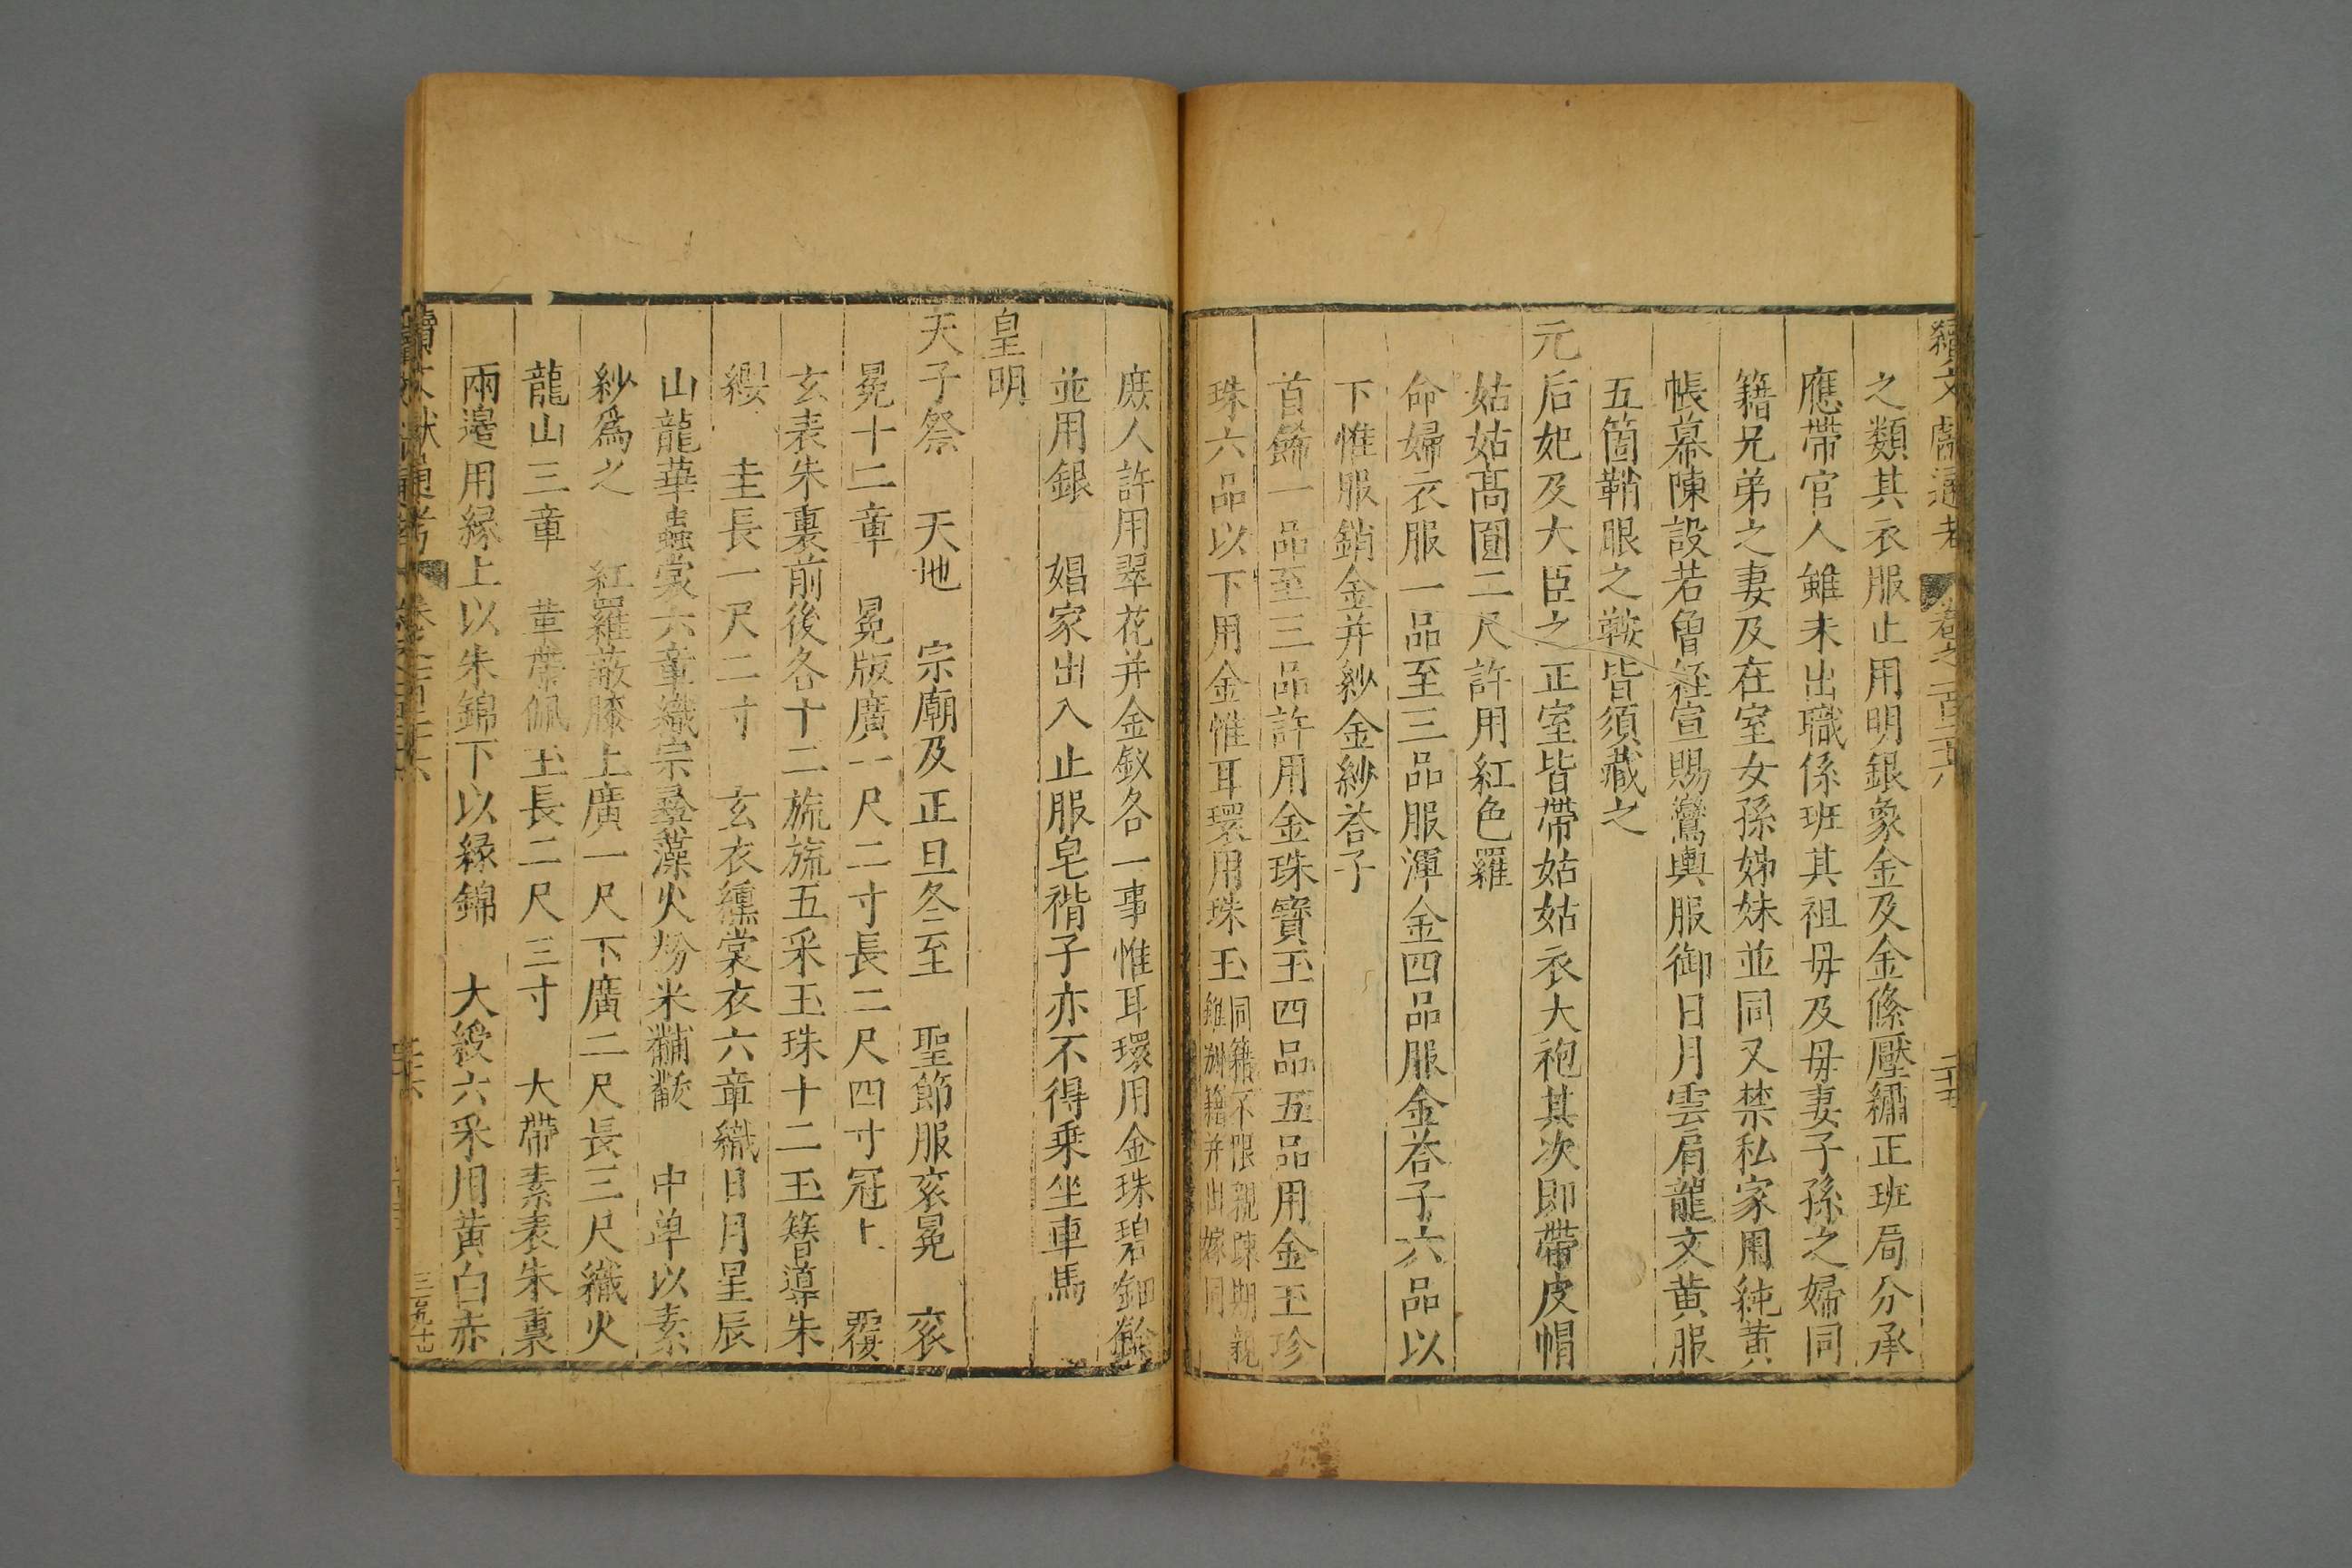 續文獻通考
卷之一百二十六
二十五
之類其衣服止用明銀象金及金絛壓繡正班局分承
應帶官人雖未出職係班其祖母及母妻子孫之婦同
籍兄弟之妻及在室女孫姊妹並同又禁私家用純黄
帳幕陳設若曾經宣賜鸞輿服御日月雲肩龍文黄服
五箇鞘眼之鞍皆須藏之
元后妃及大臣之正室皆帶姑姑衣大袍其次即帶皮帽
姑姑高圓二尺許用紅色羅
命婦衣服一品至三品服渾金四品服金荅子六品以
下惟服銷金并紗金紗荅子
首飾一品至三品許用金珠寳玉四品五品用金玉珍
珠六品以下用金惟耳環用珠玉
同籍不限親踈期親
雖别籍并出嫁同
庶人許用翠花并金釵各一事惟耳環用金珠碧鈿餘
並用銀 娼家出入止服皂褙子亦不得乗坐車馬
皇明
天子祭 天地 宗廟及正旦冬至 聖節服衮冕 衮
冕十二章 冕版廣一尺二寸長二尺四寸冠上 覆
玄表朱裏前後各十二旒旒五采玉珠十二玉簪導朱
纓 圭長一尺二寸 玄衣纁裳衣六章織日月星辰
山龍華蟲裳六章織宗彝藻火粉米黼黻 中单以素
紗爲之 紅羅蔽膝上廣一尺下廣二尺長三尺織火
龍山三章 革帶佩玉長二尺三寸 大帶素表朱裏
兩邊用緣上以朱錦下以緑錦 大綬六采用黄白赤
續文獻通考
卷之一百二十六
二十六